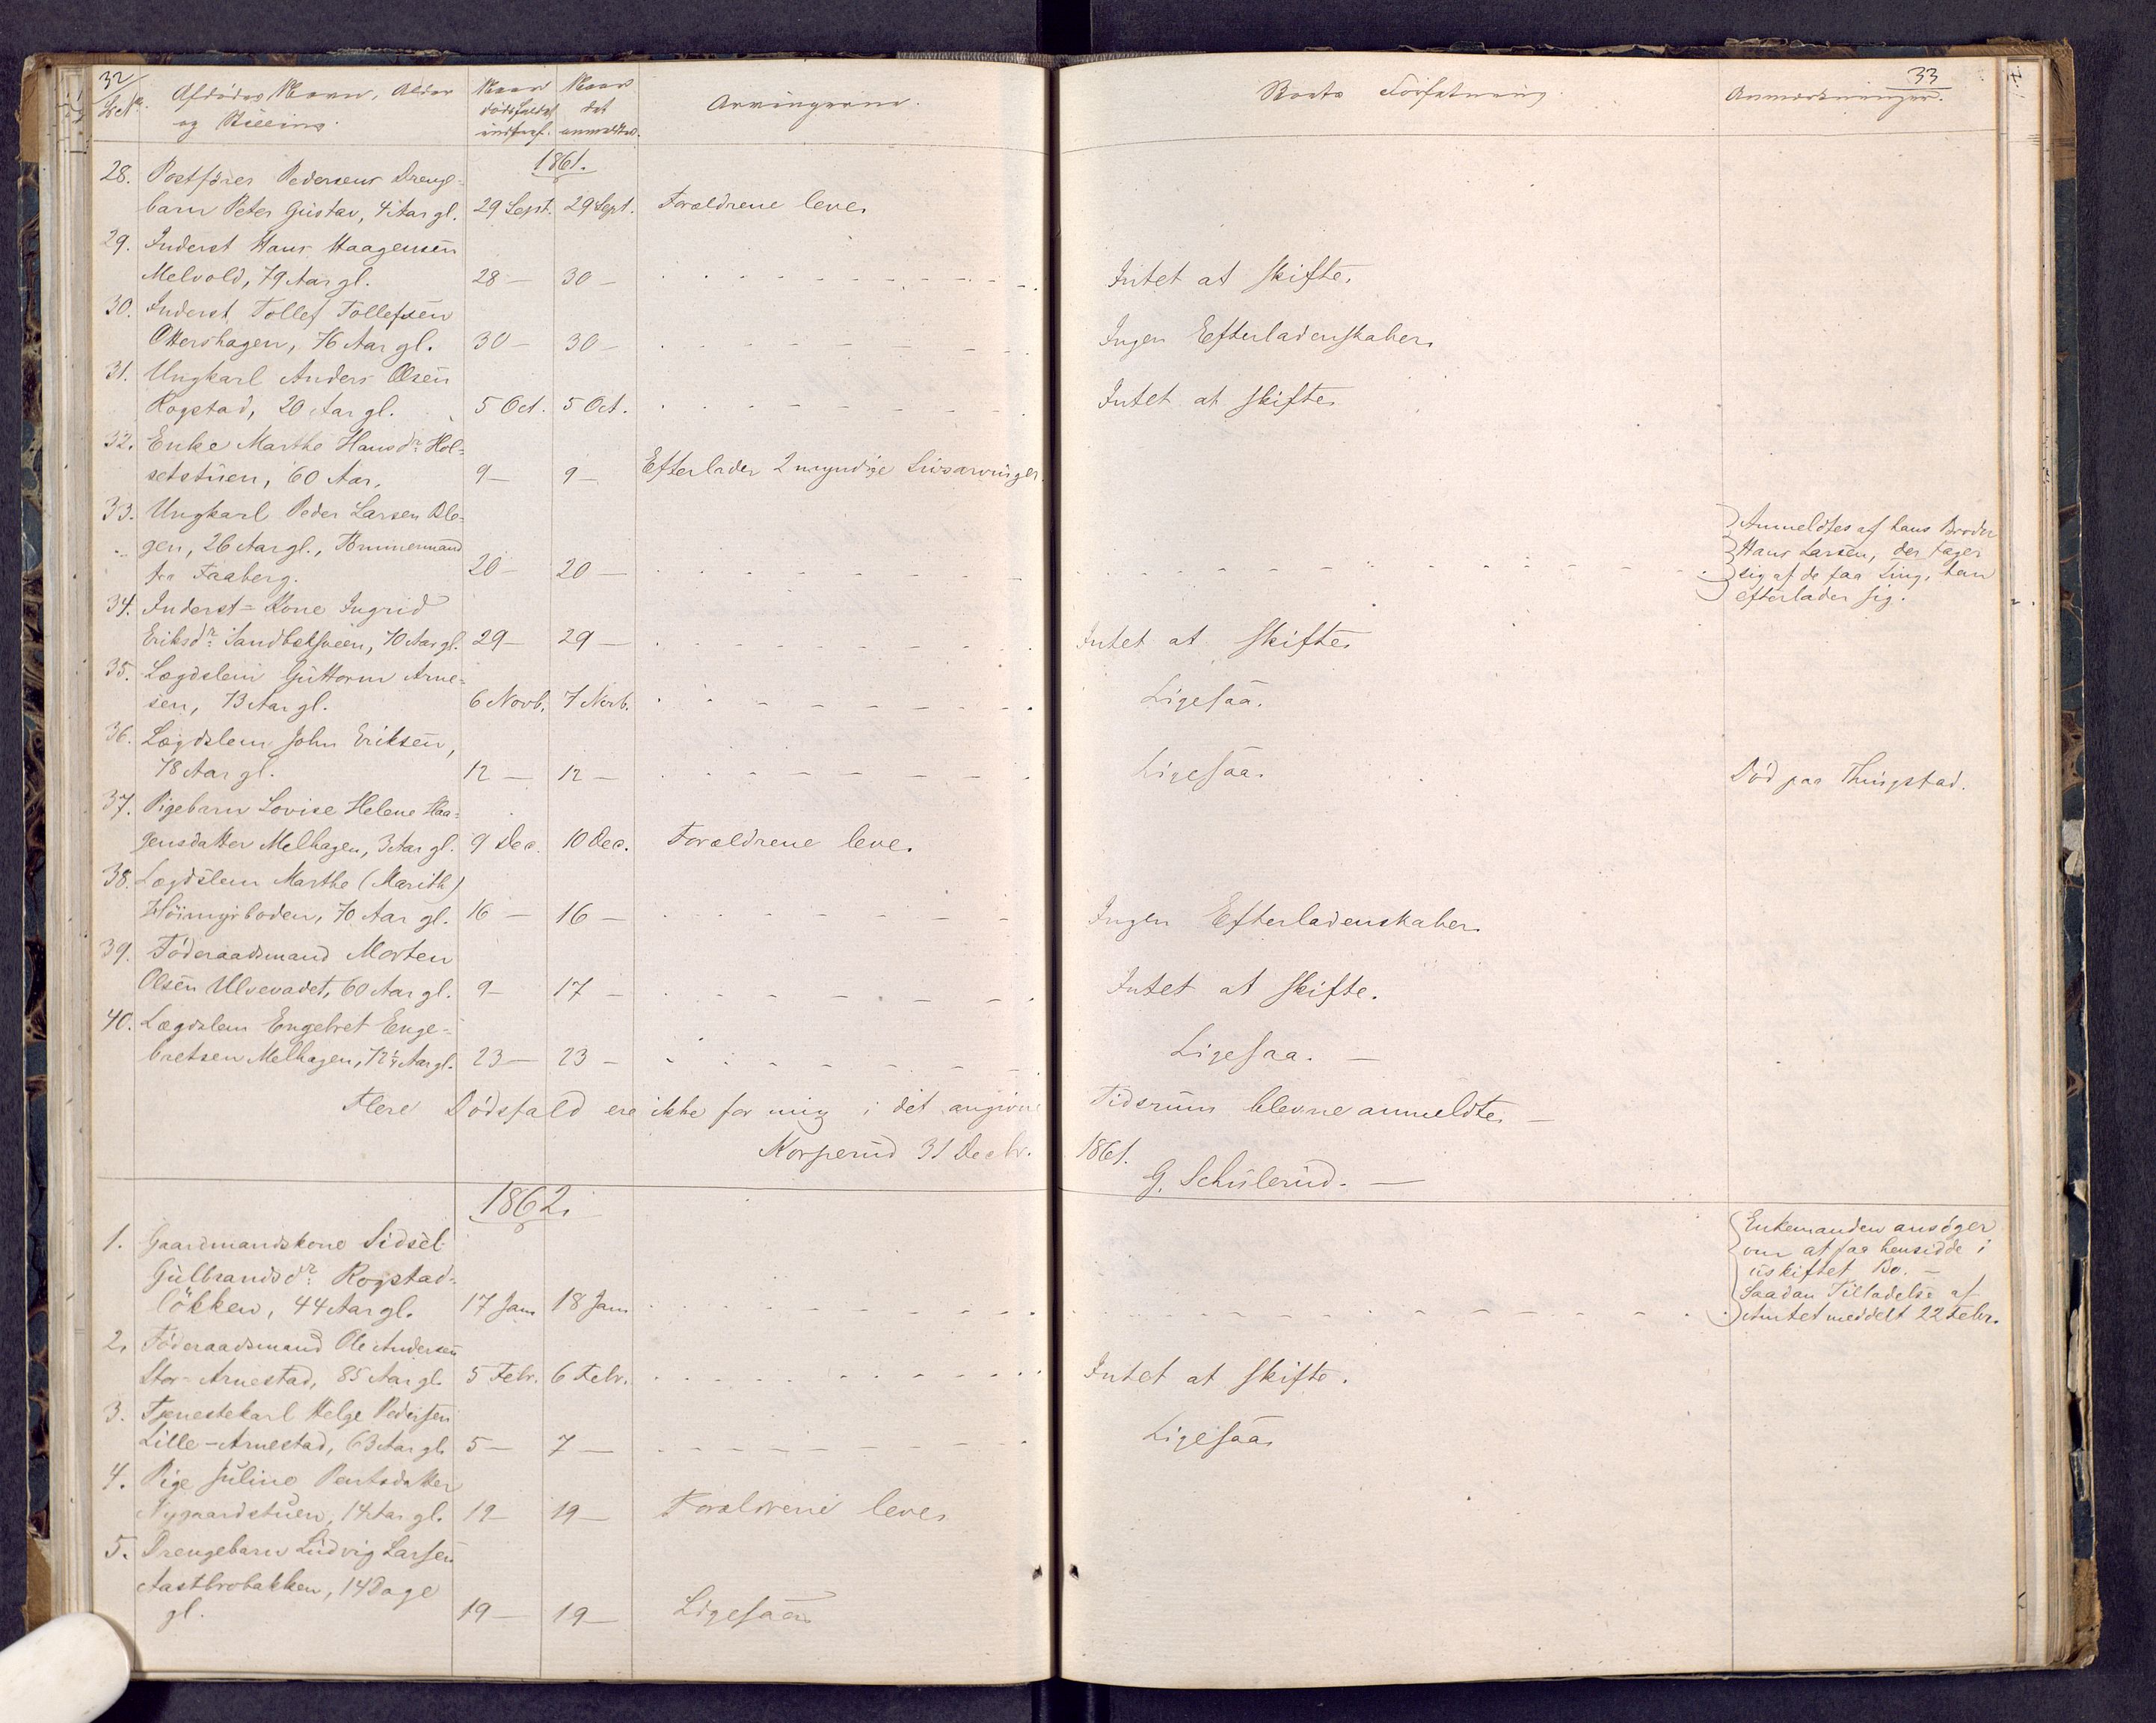 32
Lb. No.
Afdödes Navn, Alder
og Stilling.
Naar
dödsfaldet
indtraf.
Naar
det
anmeldtes.
Arvingerne.
1861.
28. Postfører Pedersens Drenge-
barn Peter Gustav, 4 Aar gl. 29 Sept. 29 Sept. Forældrene leve.
29. Inderst Hans Haagensen
Melvold, 79 Aar gl. 28 — 30 —
30. Inderst Tollef Tollefsen
Ottershagen, 76 Aar gl. 30 — 30 —
31. Ungkarl Anders Olsen
Rogstad, 20 Aar gl. 5 Oct. 5 Oct.
32. Enke Marthe Hansdr. Hol-
setstuen, 60 Aar. 9 — 9 — Efterlader 2 myndige Livsarvinger.
33. Ungkarl Peder Larsen Ble-
gen, 26 Aar gl., Tømmermand
fra Faaberg. 20 — 20 —
34. Inderst-Kone Ingrid
Eriksdr. Sandbeksveen, 70 Aar gl. 29 — 29 —
35. Lægdslem Guttorm Arne-
sen, 73 Aar gl. 6 Novb. 7 Novb.
36. Lægdslem John Eriksen,
78 Aar gl. 12 — 12 —
37. Pigebarn Lovise Helene Haa-
gensdatter Melhagen, 3 Aar gl. 9 Dec. 10 Dec. Forældrene leve.
38. Lægdslem Marthe (Marith)
Höimyrboden, 70 Aar gl. 16 — 16 —
39. Föderaadsmand Morten
Olsen Ulvevadet, 60 Aar gl. 9 — 17 —
40. Lægdslem Engebret Enge-
bretsen Melhagen, 72 Aar gl. 23 — 23 —
Flere Dödsfald ere ikke for mig i det angivne
Korperud 31 Decbr.
1862.
1. Gaardmandskone Sidsel
Gulbrandsdr. Rogstad-
lökken, 44 Aar gl. 17 Jan. 18 Jan.
2. Föderaadsmand Ole Andersen
Stor-Arnestad, 85 Aar gl. 5 Febr. 6 Febr.
3. Tjenestekarl Helge Pedersen
Lille-Arnestad, 63 Aar gl. 5 — 7 —
4. Pige Juline Pentsdatter
Nygaardstuen, 14 Aar gl. 19 — 19 — Forældrene leve.
5. Drengebarn Ludvig Larsen
Aastbrobakken, 14 Dage
gl. 19 — 19 — Ligesaa.
33
Boets Forfatning.
Anmærkninger.
Intet at skifte.
Ingen Efterladenskaber.
Intet at skifte.
Anmeldtes af hans Broder
Hans Larsen, der tager
sig af de faa Ting, han
efterlader sig.
Intet at skifte.
Ligesaa.
Ligesaa.
Död paa Thingstad.
Ingen Efterladenskaber.
Intet at skifte.
Ligesaa. —
Tidsrum blevne anmeldte. —
1861.
G. Schulerud. —
Enkemanden ansöger
om at faa hensidde i
uskiftet Bo. —
Saadan Tilladelse af
Amtet meddelt 22 Febr.
Intet at skifte.
Ligesaa.